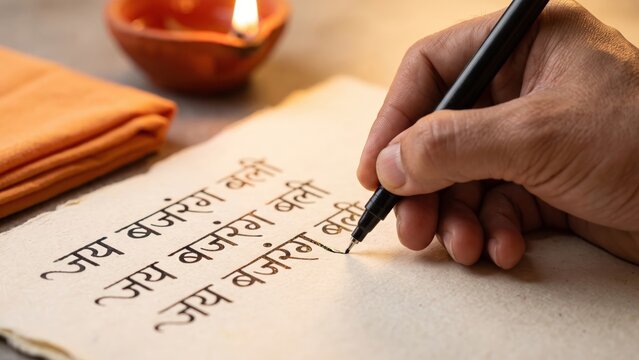 जय बजरंग बली
जय बजरंग बली
जय बजरंग बली